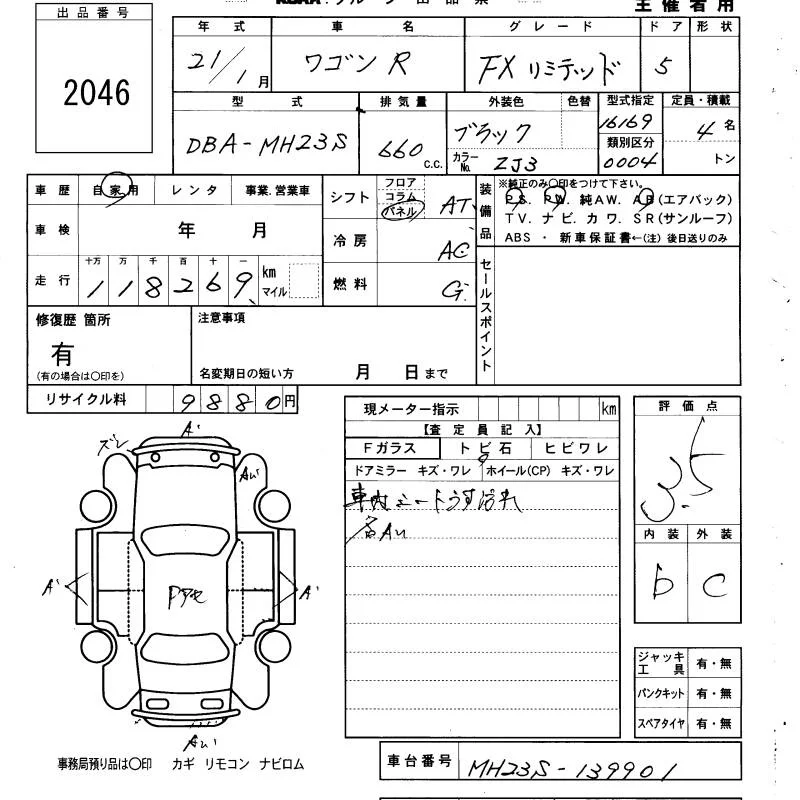 出品番号
主催者用
2046
年式 車名 グレード ドア 形状
21/1月 ワゴンR FXリミテッド 5
型式 排気量 外装色 色替 型式指定 定員・積載
DBA-MH23S 660c.c. ブラック 16169 4名
カラーNo. ZJ3 類別区分 0004 トン
車歴 自家用 レンタ 事業.営業車
シフト フロア コラム パネル AT
装備品 ※純正のみ○印をつけて下さい。
PS. PW. 純AW. AB(エアバック)
TV. ナビ. カワ. SR(サンルーフ)
ABS ・ 新車保証書←(注) 後日送りのみ
車検 年 月
冷房 AC
走行 十万 万 千 百 十 一
118269 km マイル
燃料 G
セールスポイント
修復歴 箇所
有
(有の場合は○印を)
注意事項
名変期日の短い方 月 日まで
リサイクル料 9880円
現メーター指示 km
【査定員記入】
Fガラス トビ石 ヒビワレ
ドアミラー キズ・ワレ ホイール(CP) キズ・ワレ
車内シートうす汚れ
各AU
評価点
3.5
内装 外装
b C
A'
ズレ
AU'
A'
A'
Pアセ
AU'
ジャッキ工具 有・無
パンクキット 有・無
スペアタイヤ 有・無
事務局預り品は○印 カギ リモコン ナビロム
車台番号 MH23S-139901